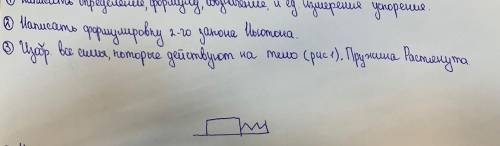 ① Написать определение, формулу, обозначение, и ед измерения ускорения.
② Написать формулировку 2-го закона Ньютона.
③ Изобр. все силы, которые действуют на тело (рис 1). Пружина Растянута